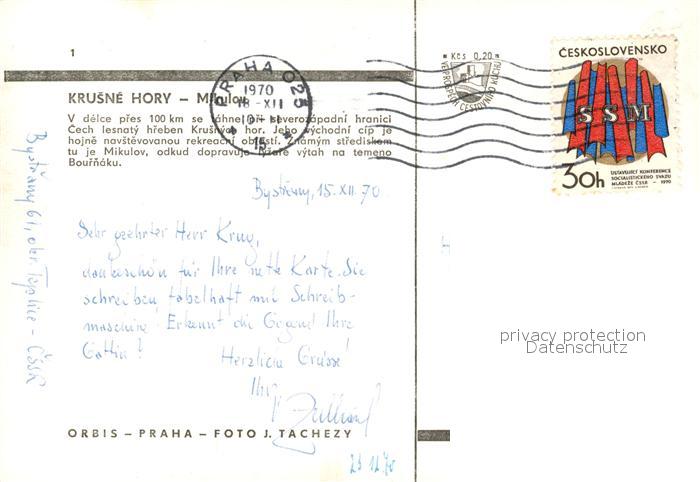 1
KRUŠNÉ HORY – Mikulov
V délce přes 100 km se táhne při severozápadní hranici
Čech lesnatý hřeben Krušných hor. Jeho východní cíp je
hojně navštěvovanou rekreační oblastí. Známým střediskem
tu je Mikulov, odkud dopravuje lyžaře výtah na temeno
Bouřňáku.
PRAHA 025
1970
18.-XII
15
Kčs 0,20
ČESKOSLOVENSKO
SSM
30h
USTAVUJÍCÍ KONFERENCE
SOCIALISTICKÉHO SVAZU
MLÁDEŽE ČSSR – 1970
Bystřany, 15.XII.70
Sehr geehrter Herr Krug,
dankeschön für Ihre nette Karte. Sie
schreiben fabelhaft mit Schreib-
maschine! Erkennt die Gegend Ihre
Gattin?
Herzliche Grüsse!
Ihr
Bystřany 61, okr. Teplice - ČSSR
H
privacy protection
Datenschutz
ORBIS – PRAHA – FOTO J. TACHEZY